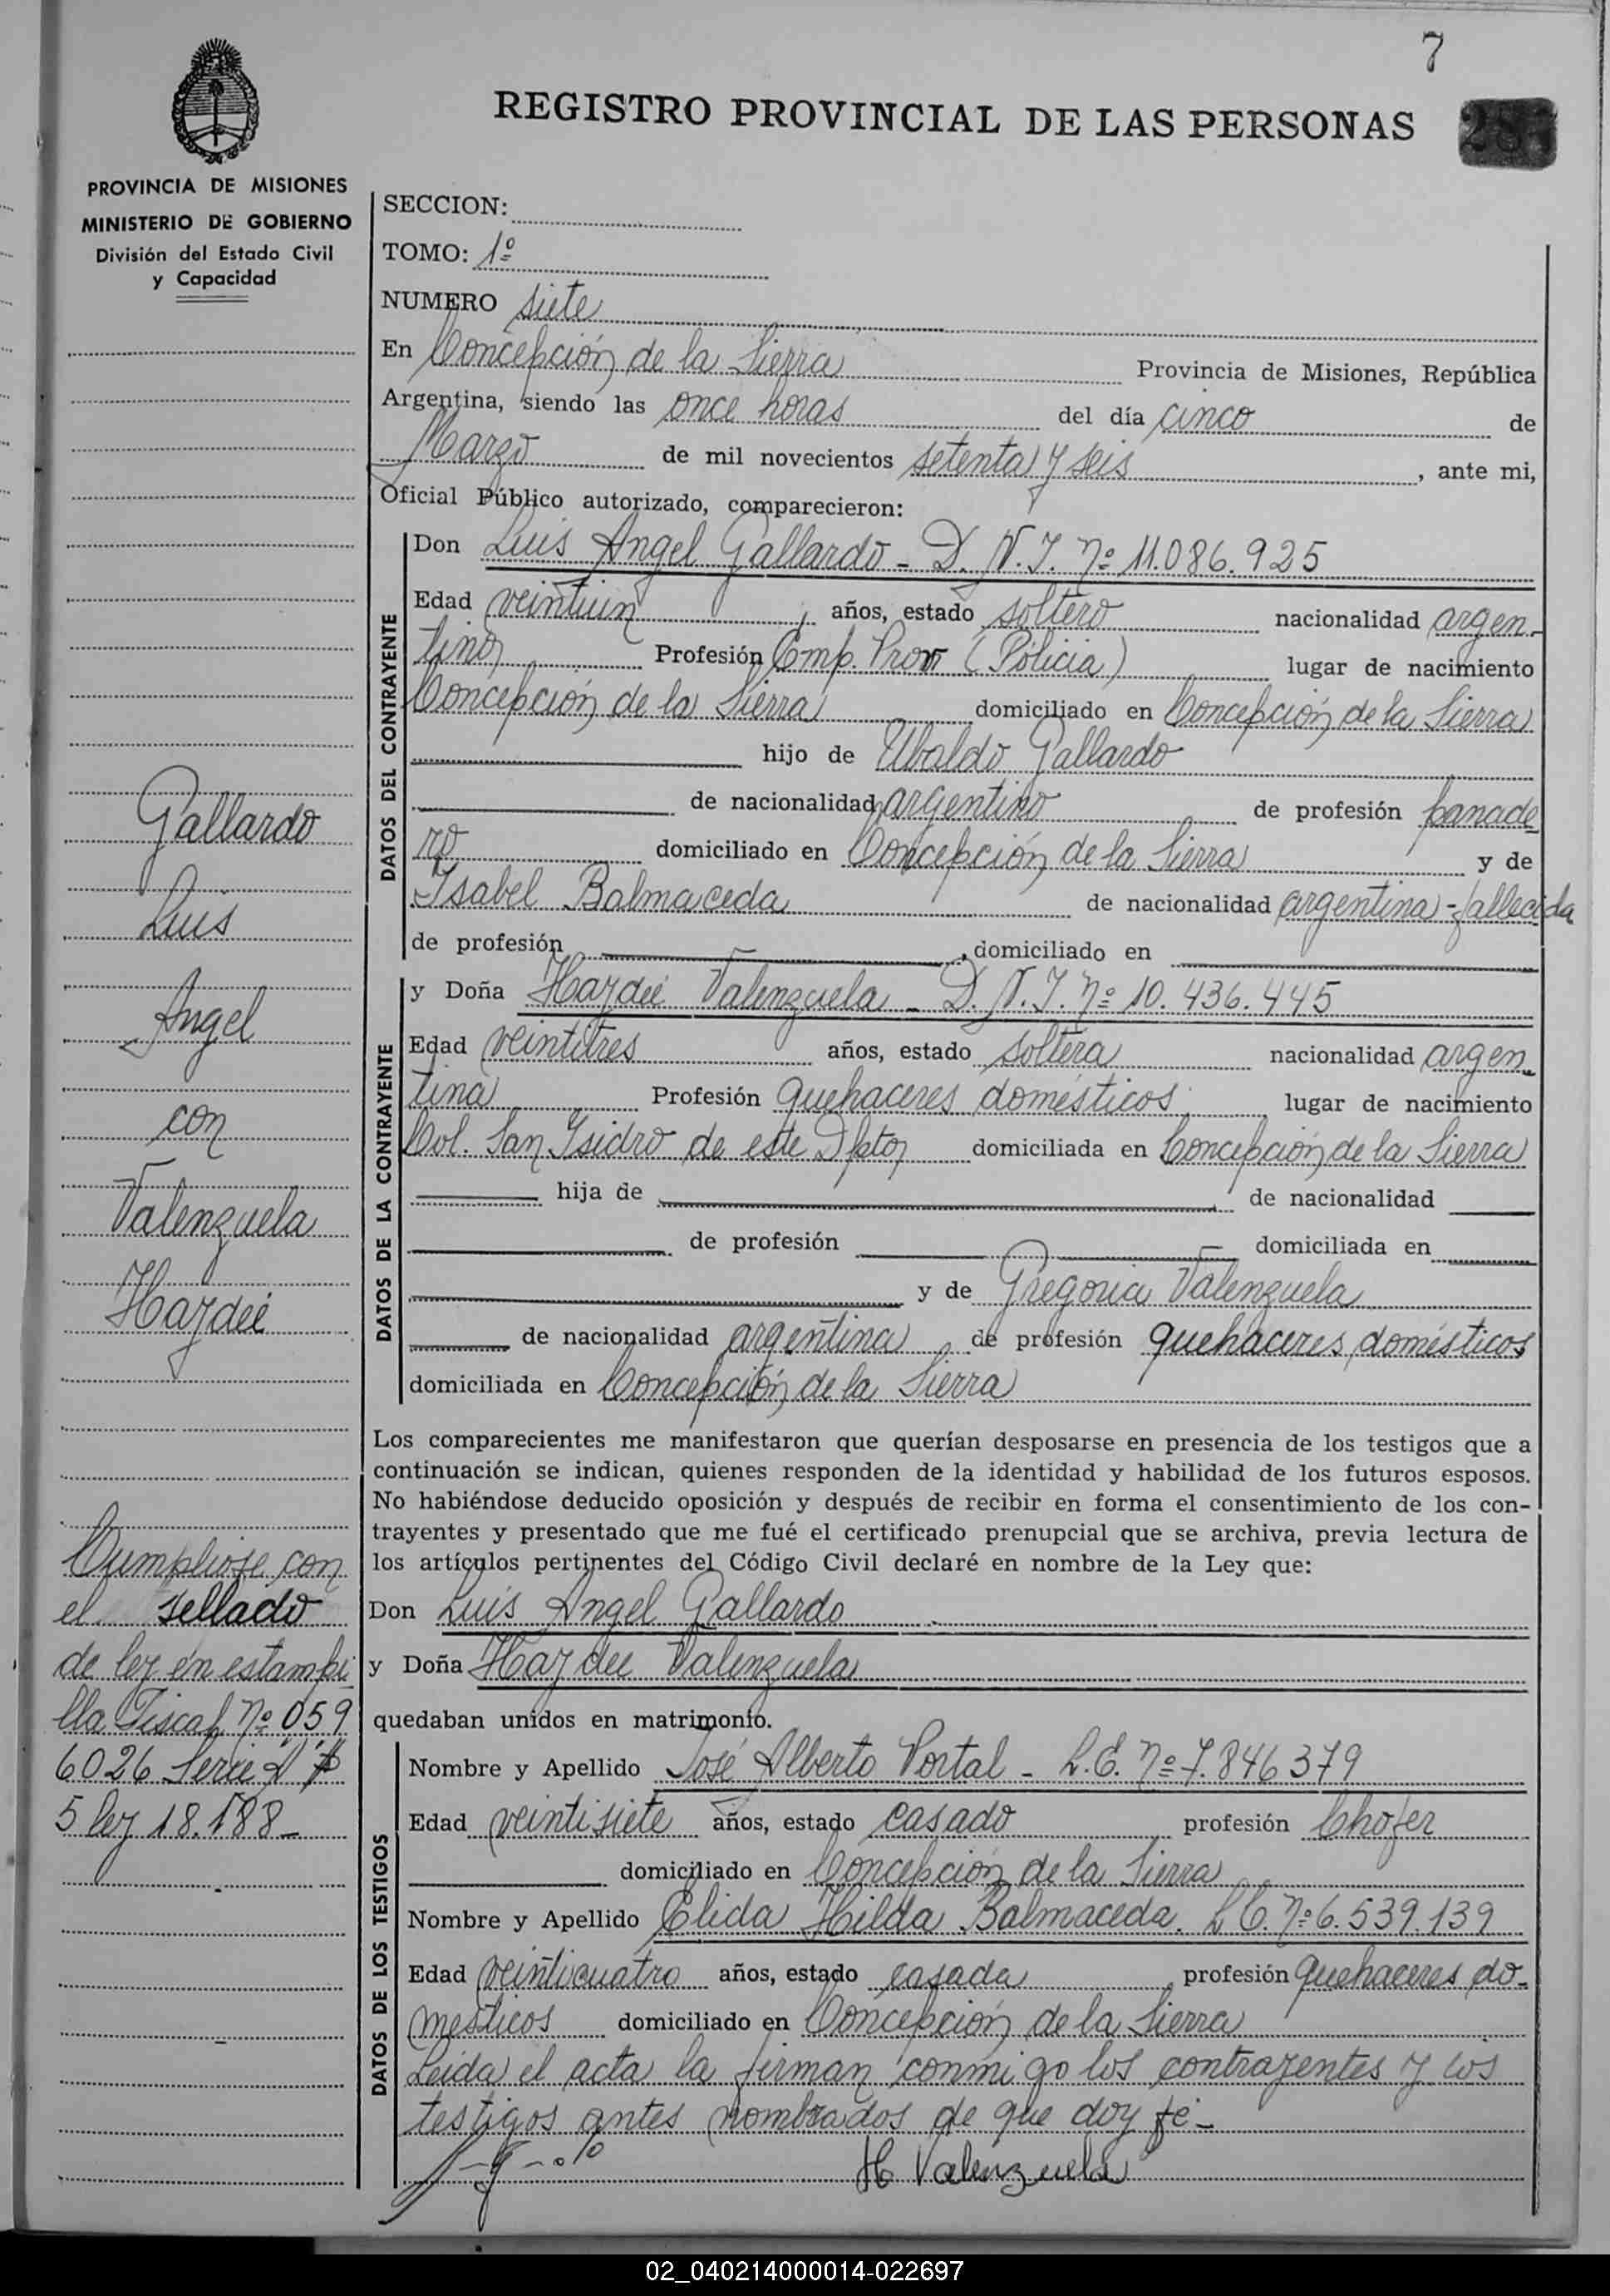 7
REGISTRO PROVINCIAL DE LAS PERSONAS
PROVINCIA DE MISIONES
MINISTERIO DE GOBIERNO
División del Estado Civil
y Capacidad
SECCION:
TOMO: 1º
NUMERO siete
En Concepción de la Sierra Provincia de Misiones, República
Argentina, siendo las once horas del día cinco de
Marzo de mil novecientos setenta y seis, ante mi,
Oficial Público autorizado, comparecieron:
DATOS DEL CONTRAYENTE
Don Luis Angel Gallardo - D. N. I. Nº 11.086.925
Edad veintiun, años, estado soltero nacionalidad argen-
tino, Profesión Emp. Prov (Policia) lugar de nacimiento
Concepción de la Sierra domiciliado en Concepción de la Sierra
hijo de Ubaldo Gallardo
de nacionalidad argentino de profesión panade
ro domiciliado en Concepción de la Sierra y de
Isabel Balmaceda de nacionalidad argentina - fallecida
de profesión , domiciliado en
DATOS DE LA CONTRAYENTE
y Doña Haydeé Valenzuela - D. N. I. Nº 10.436.445
Edad veintitres años, estado soltera nacionalidad argen
tina Profesión quehaceres domésticos lugar de nacimiento
Col. San Isidro de este Dpto, domiciliada en Concepción de la Sierra
hija de de nacionalidad
de profesión domiciliada en
y de Gregoria Valenzuela
de nacionalidad argentina, de profesión quehaceres domésticos
domiciliada en Concepción de la Sierra
Los comparecientes me manifestaron que querían desposarse en presencia de los testigos que a
continuación se indican, quienes responden de la identidad y habilidad de los futuros esposos.
No habiéndose deducido oposición y después de recibir en forma el consentimiento de los con-
trayentes y presentado que me fué el certificado prenupcial que se archiva, previa lectura de
los artículos pertinentes del Código Civil declaré en nombre de la Ley que:
Don Luis Angel Gallardo
y Doña Haydee Valenzuela
quedaban unidos en matrimonio.
DATOS DE LOS TESTIGOS
Nombre y Apellido José Alberto Portal - L.E. Nº 7.846379
Edad veintisiete años, estado casado profesión Chofer
domiciliado en Concepción de la Sierra
Nombre y Apellido Elida Hilda Balmaceda. L C. Nº 6.539.139
Edad veinticuatro años, estado casada, profesión quehaceres do-
mésticos domiciliado en Concepción de la Sierra
Leída el acta la firman conmigo los contrayentes y los
testigos antes nombrados de que doy fé -
H Valenzuela
Gallardo
Luis
Angel
con
Valenzuela
Haydeé
Cumpliose con
el sellado
de ley en estampi
lla Fiscal Nº 059
6026 Serie A
5 ley 18.188 -
02_040214000014-022697